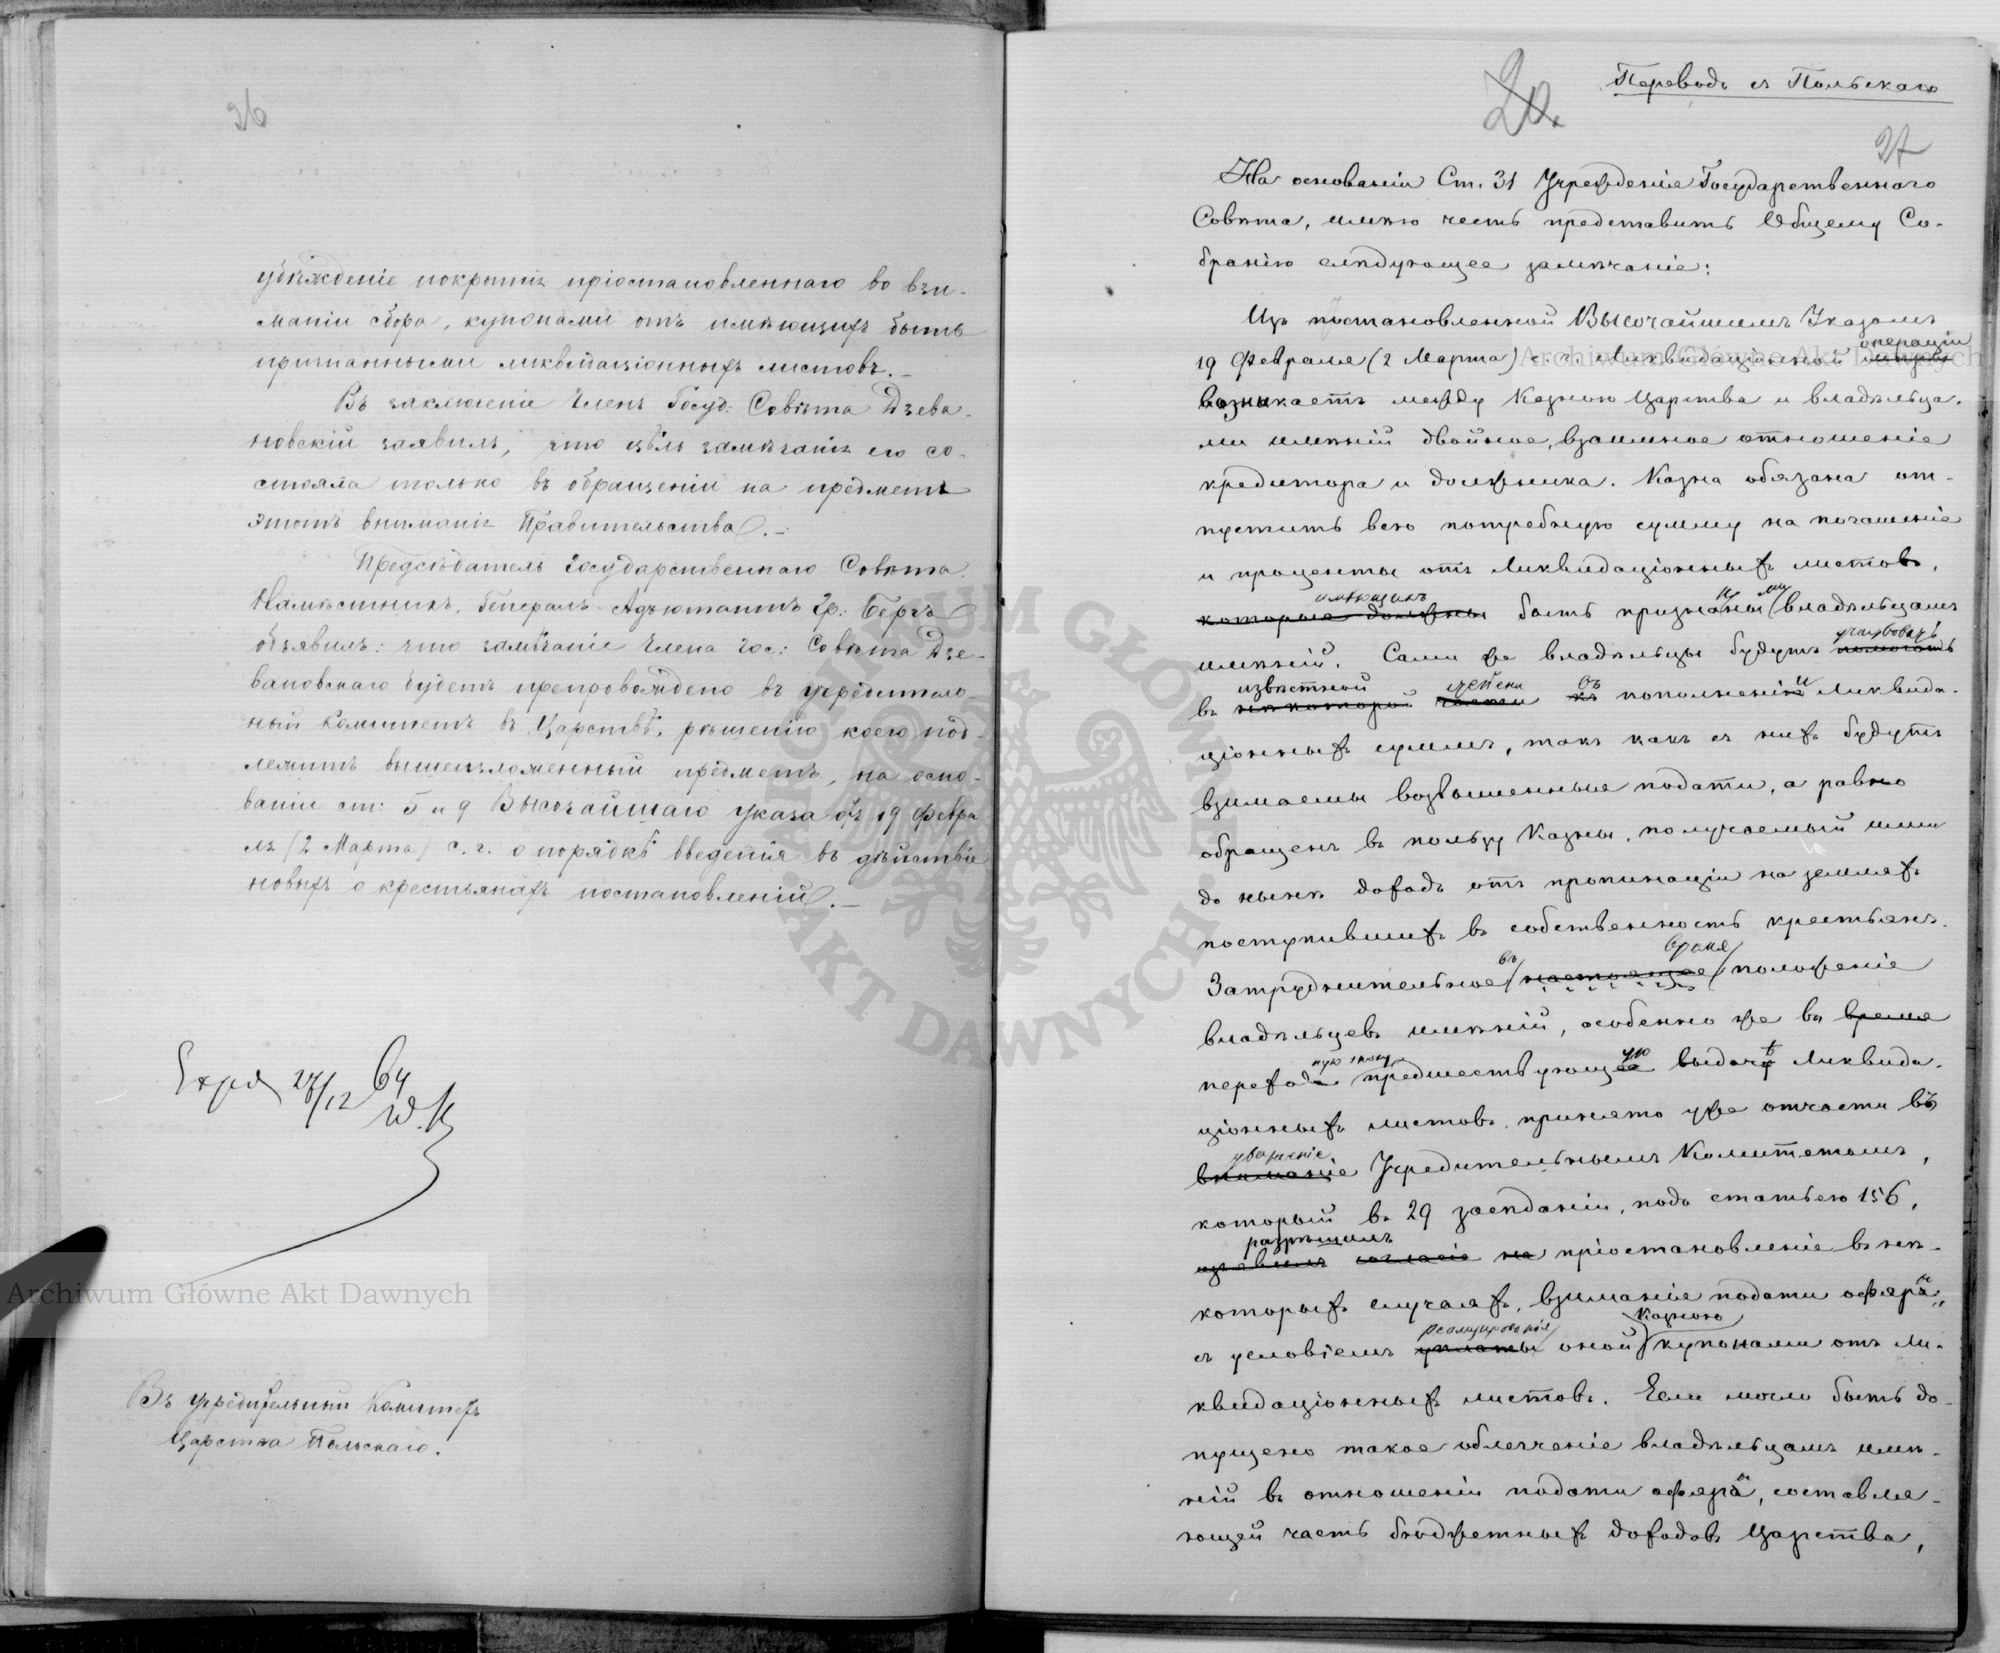 26
убѣжденіе покрытія пріостановленнаго во взи-
маніи сбора, купонами отъ имѣющихъ быть
признанными ликвидаціонныхъ листовъ. —
Въ заключеніе Членъ Госуд: Совѣта Дзева-
новскій заявилъ, что цѣль замѣчанія его со-
стояла только въ обращеніи на предметъ
этотъ вниманія Правительства. —
Предсѣдатель Государственнаго Совѣта
Намѣстникъ, Генералъ-Адъютантъ Гр: Бергъ
объявилъ: что замѣчаніе Члена Гос: Совѣта Дзе-
вановскаго будетъ препровождено въ учредитель-
ный Комитетъ въ Царствѣ, рѣшенію коего под-
лежитъ вышеизложенный предметъ, на осно-
ваніи ст: 5 и 9 Высочайшаго указа отъ 19 Февра
ля (2 Марта) с. г. о порядкѣ введенія въ дѣйствіе
новыхъ о крестьянахъ постановленій. —
27/12 64
Въ учредительный Комитетъ
Царства Польскаго.
Переводъ съ Польскаго
20.
27
На основаніи Ст. 31 Учрежденія Государственнаго
Совѣта, имѣю честь представить Общему Со-
бранію слѣдующее замѣчаніе:
Изъ постановленной Высочайшимъ Указомъ
операціи
19 Февраля (2 Марта) с. г. Ликвидаціонной мѣры
возникаетъ между Казною Царства и владѣльца-
ми имѣній двойное, взаимное отношеніе
кредитора и должника. Казна обязана от-
пустить всю потребную сумму на погашеніе
и проценты отъ Ликвидаціонныхъ листовъ,
имѣющихъ
которые должны быть признаны владѣльцамъ
имѣній. Сами же владѣльцы будутъ помогать
участвовать
извѣстной степени въ
въ нѣкоторой части къ пополненіи Ликвида-
ціонныхъ суммъ, такъ какъ съ нихъ будутъ
взимаемы возвышенные подати, а равно
обращенъ въ пользу Казны, получаемый ими
до нынѣ доходъ отъ пропинаціи на земляхъ
поступившихъ въ собственность крестьянъ.
въ время
Затруднительное настоящее положеніе
владѣльцевъ имѣній, особенно же въ время
ную эпоху
перехода предшествующую выдачѣ Ликвида-
ціонныхъ листовъ, принято уже отчасти въ
уваженіе
вниманіе Учредительнымъ Комитетомъ,
который въ 29 засѣданіи, подъ статьею 156,
разрѣшилъ
изъявилъ согласіе на пріостановленіе въ нѣ-
которыхъ случаяхъ, взиманія подати офяры,
реализированія Казною
съ условіемъ уплаты оной купонами отъ Ли-
квидаціонныхъ листовъ. Если могло быть до-
пущено такое облегченіе владѣльцамъ имѣ-
ній въ отношеніи подати офяры, составля-
ющей часть бюджетныхъ доходовъ Царства,
Archiwum Główne Akt Dawnych
Archiwum Główne Akt Dawnych
ARCHIWUM GŁÓWNE AKT DAWNYCH